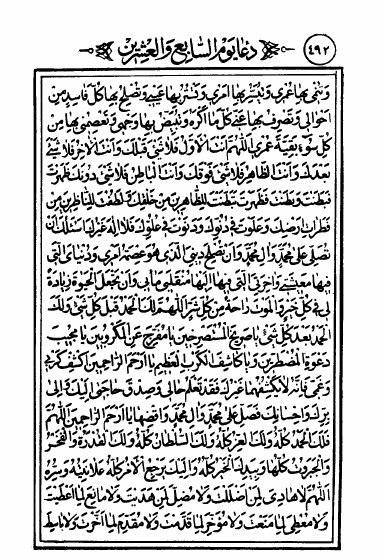 دعاء يوم السابع والعشرين
٤٩٢
وتنمي بها عمري وتيسر بها امري وتستر بها عيبي وتصلح بها كل فاسد من
احوالي وتصرف بها عني كل ما اكره وتبيض بها وجهي وتعصمني بها من
كل سوء بقية عمري اللهم انت الاول فلا شئ قبلك وانت الآخر فلا شئ
بعدك وانت الظاهر فلا شئ فوقك وانت الباطن فلا شئ دونك ظهرت
فبطنت وبطنت فظهرت تبطنت للظاهرين من خلقك ولطفت للناظرين من
فطرات ارضك وعلوت في دنوك ودنوت في علوك فلا اله غيرك اسئلك ان
تصلي على محمد وال محمد وان تصلح ديني الذي هو عصمة امري ودنياي التي
فيها معيشتي وآخرتي التي فيها اليها منقلبي مابي وان تجعل الحيوة زيادة
لي في كل خير والموت راحة من كل شر اللهم لك الحمد قبل كل شئ ولك
الحمد بعد كل شئ يا صريخ المستصرخين يا مفرج عن المكروبين يا مجيب
دعوة المضطرين ويا كاشف الكرب العظيم يا ارحم الراحمين اكشف كربي
وغمي فانه لا يكشفهما غيرك فقد تعلم حالي وصدق حاجتي اليك والى
برك واحسانك فصل على محمد وال محمد واقضها يا ارحم الراحمين اللهم
فلك الحمد كله ولك العز كله ولك السلطان كله ولك القدرة والفخر
والجبروت كلها وبيدك الخير كله واليك يرجع الامر كله علانيته وسره
اللهم لا هادي لمن اضللت ولا مضل لمن هديت ولا مانع لما اعطيت
ولا معطي لما منعت ولا مؤخر لما قدمت ولا مقدم لما اخرت ولا باسط